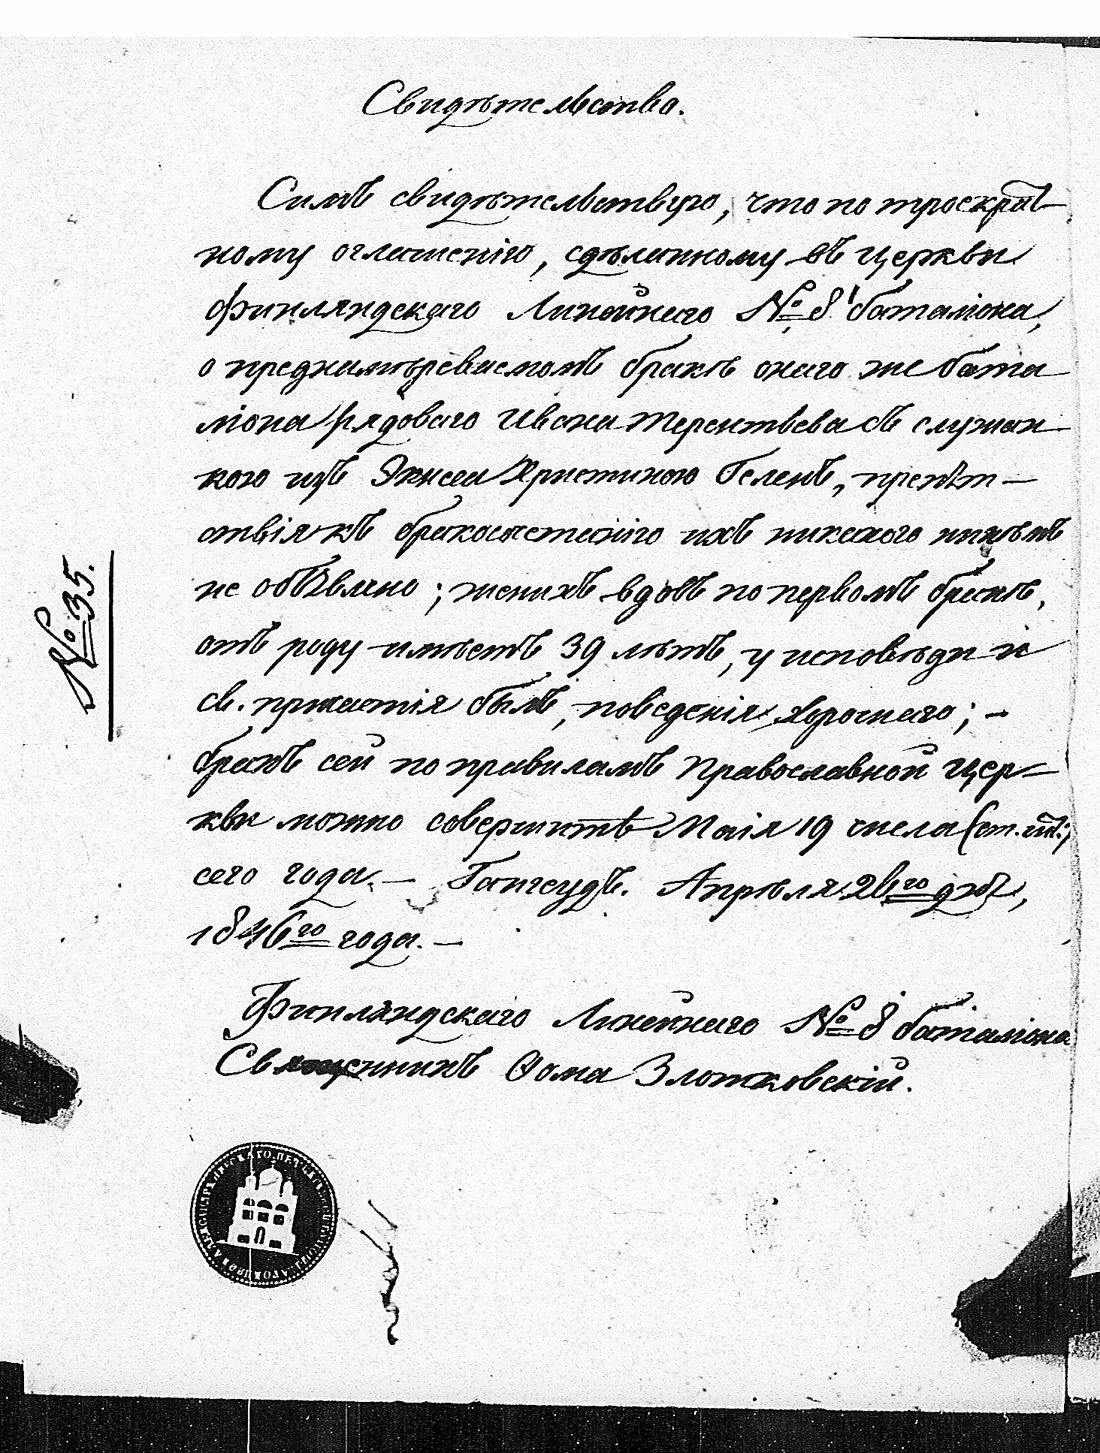 Свидѣтельство.
Симъ свидѣтельствую, что по троекрат-
ному оглашенію, сдѣланному въ церкви
Финляндскаго Линейнаго № 8 баталіона,
о преднамѣреваемомъ бракѣ онаго же бата
ліона рядоваго Ивана Терентьева съ служан-
кою изъ Экнеса Христиною Геленъ, препят-
ствія къ бракосочетанію ихъ никакого никѣмъ
не объявлено; женихъ вдовъ по первомъ бракѣ,
отъ роду имѣетъ 39 лѣтъ, у исповѣди и
св. причастія былъ, поведенія хорошаго; –
бракъ сей по правиламъ Православной Цер-
кви можно совершить Маія 19 числа (ст. шт.)
сего года. – Гангеудъ. Апрѣля 26го дня,
1846го года. –
Финляндскаго Линейнаго № 8 баталіона
Священникъ Ѳома Злотковскій.
№ 35.